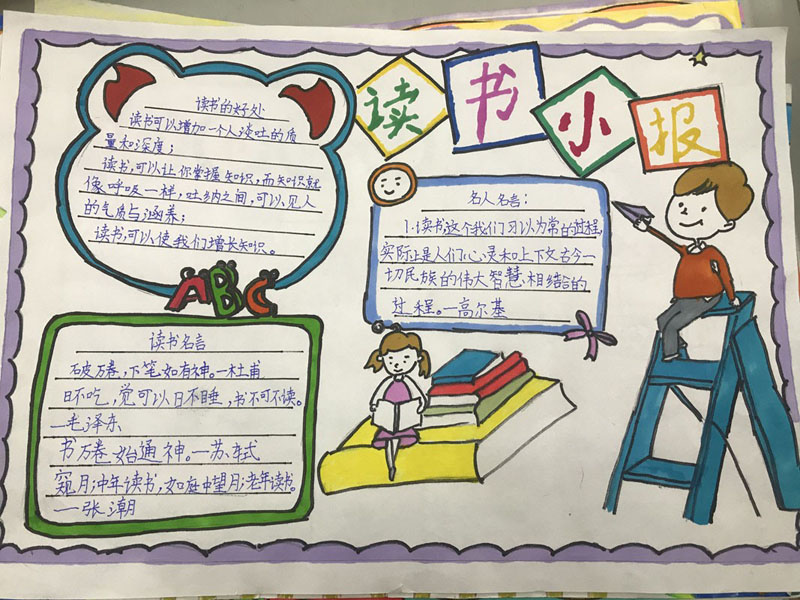 读书小报
读书的好处
读书可以增加一个人谈吐的质
量和深度；
读书,可以让你掌握知识,而知识就
像呼吸一样,吐纳之间,可以见人
的气质与涵养；
读书,可以使我们增长知识。
ABC
名人名言：
1.读书这个我们习以为常的过程,
实际上是人们心灵和上下文古今一
切民族的伟大智慧相结合的
过程。—高尔基
读书名言
破万卷,下笔如有神。—杜甫
日不吃,觉可以日不睡,书不可不读。
—毛泽东
书万卷始通神。—苏轼
窥月；中年读书,如庭中望月；老年读书。
—张潮